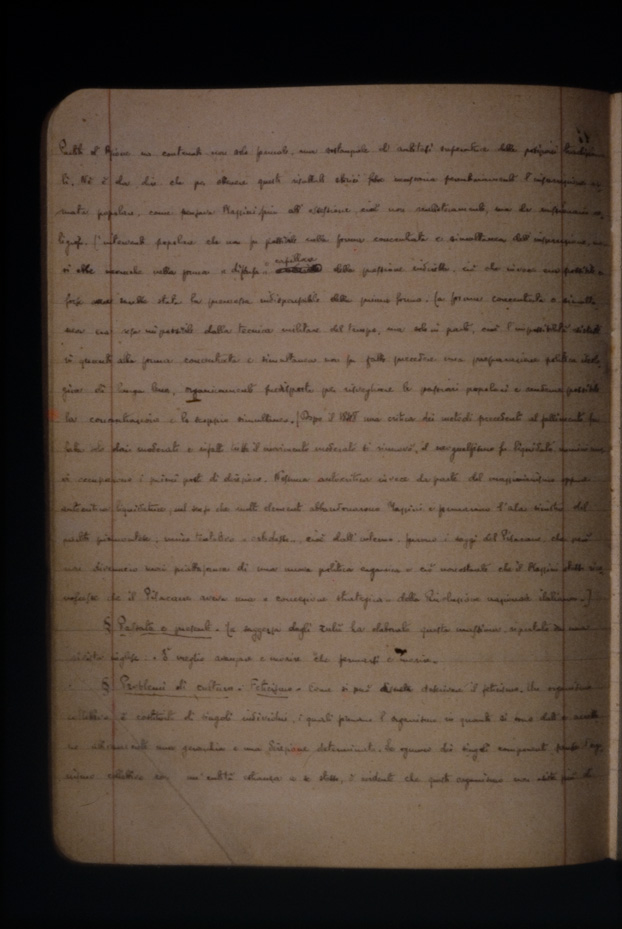 Partito d'Azione un contenuto non solo formale, ma sostanziale di antitesi superatrice delle posizioni
ti. Né è da dire che per ottenere questi risultati storici fosse necessaria perentoriamente l'insurrezione ar-
mata popolare, come pensava Mazzini fino all'ossessione, cioè non realisticamente, ma da missionario re-
ligioso. L'intervento popolare che non fu possibile nella forma concentrata e simultanea dell'insurrezione, non
si ebbe neanche nella forma « diffusa » e capillare della pressione indiretta, ciò che invece era possibile e
forse sarebbe stata la premessa indispensabile della prima forma. La forma concentrata o simulta-
nea era resa impossibile dalla tecnica militare del tempo, ma solo in parte, cioè l'impossibilità esistette
in quanto alla forma concentrata e simultanea non fu fatta precedere una preparazione politica ideolo-
gica di lunga lena, organicamente predisposta per risvegliare le passioni popolari e renderne possibile
la concentrazione e lo scoppio simultaneo. (Dopo il 1848 una critica dei metodi precedenti al fallimento fu
fatta solo dai moderati e infatti tutto il movimento moderato si rinnovò, il neoguelfismo fu liquidato, uomini nuo-
vi occuparono i primi posti di direzione. Nessuna autocritica invece da parte del mazzinianismo oppure
autocritica liquidatrice, nel senso che molti elementi abbandonarono Mazzini e formarono l'ala sinistra del
partito piemontese; unico tentativo « ortodosso », cioè dall'interno, furono i saggi del Pisacane, che però
non divennero mai piattaforma di una nuova politica organica e ciò nonostante che il Mazzini stesso rico-
noscesse che il Pisacane aveva una « concezione strategica » della Rivoluzione nazionale italiana.)
§ Passato e presente. La saggezza degli zulù ha elaborato questa massima, riportata da una
rivista inglese: « È meglio avanzare e morire che fermarsi e morire ».
§ Problemi di cultura. Feticismo. Come si può descrivere il feticismo. Un organismo
collettivo è costituito di singoli individui, i quali formano l'organismo in quanto si sono dati e accetta-
no attivamente una gerarchia e una direzione determinata. Se ognuno dei singoli componenti pensa l'or-
ganismo collettivo come un'entità estranea a se stesso, è evidente che questo organismo non esiste più di